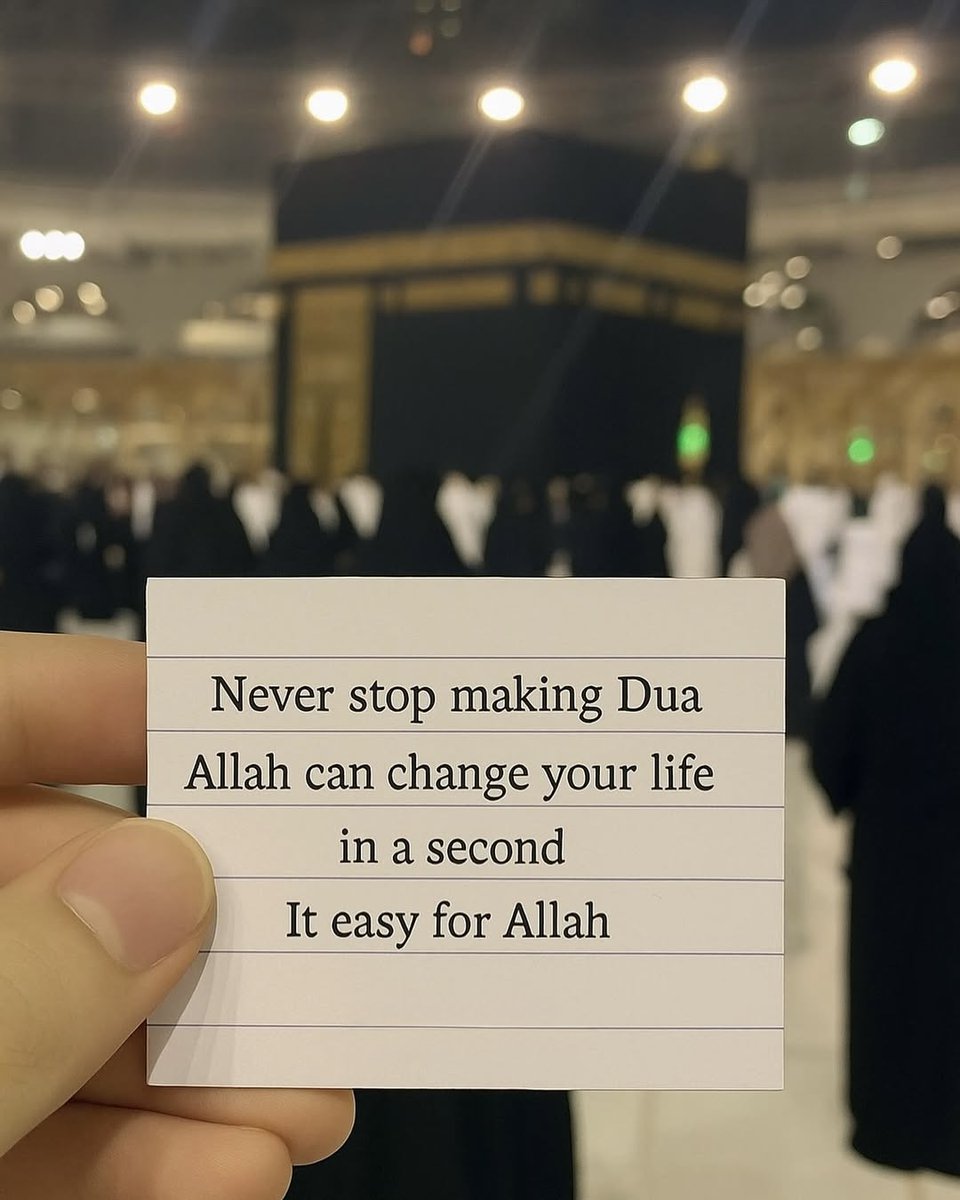 Never stop making Dua
Allah can change your life
in a second
It easy for Allah